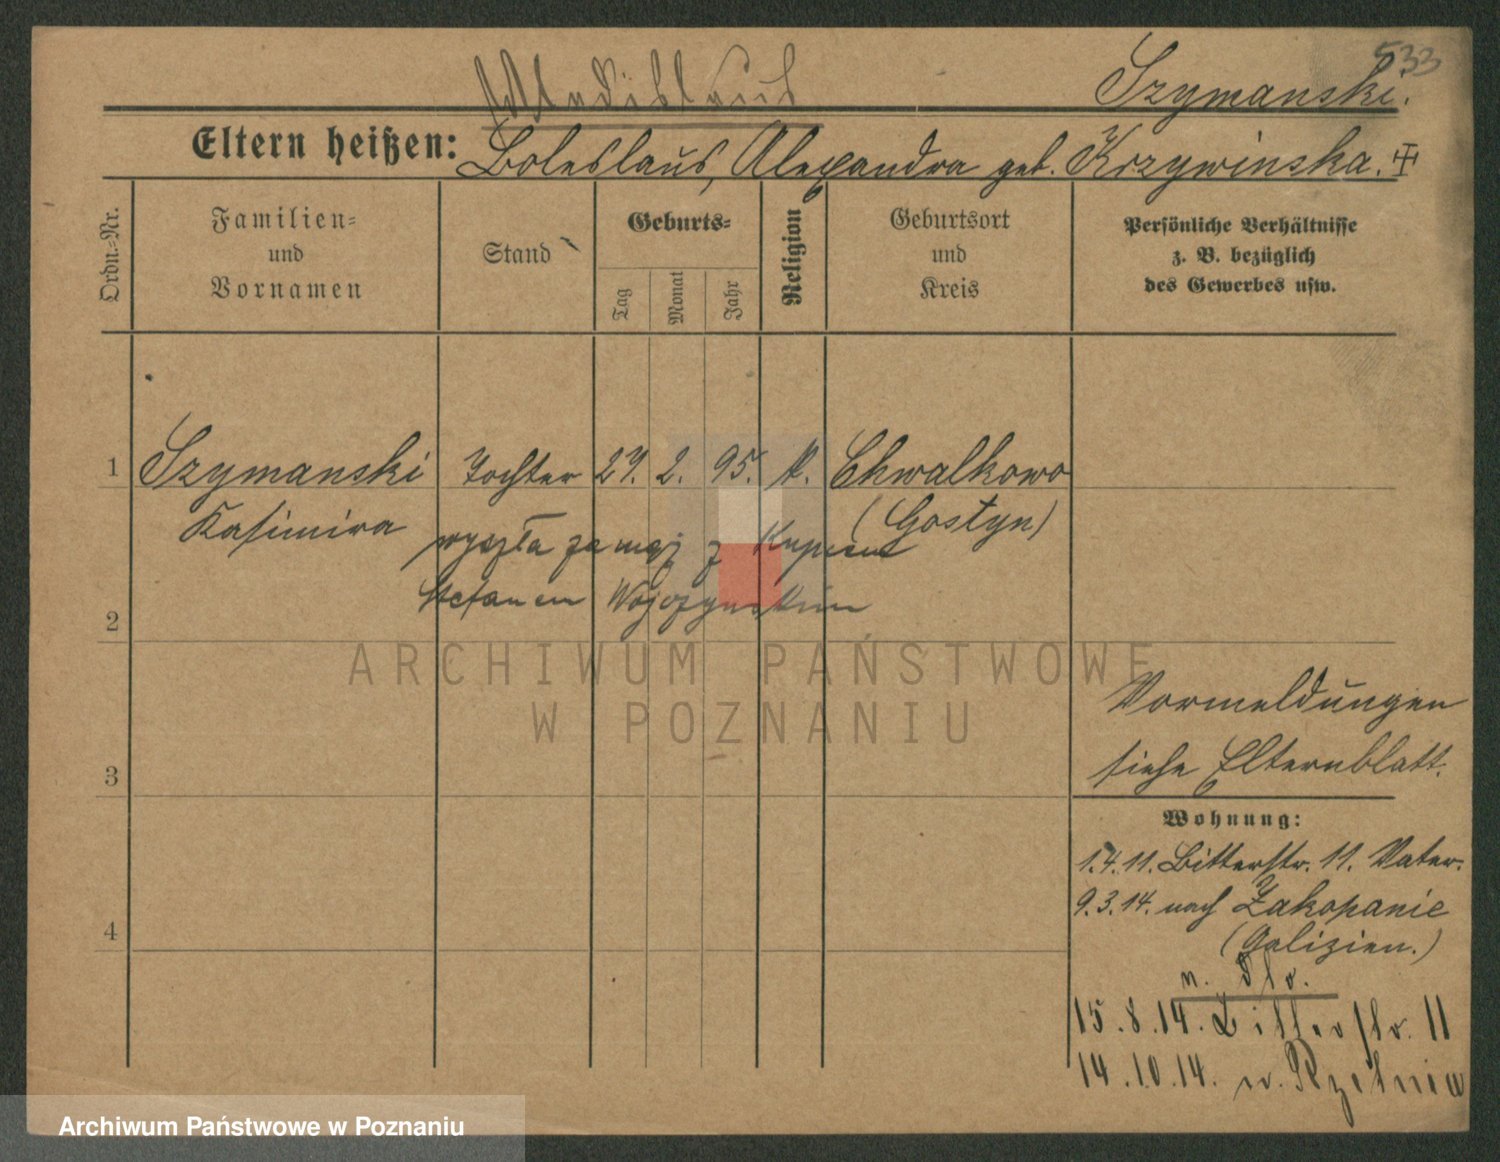 533
Wladislaus Szymanski.
Eltern heißen: Boleslaus, Alexandra geb. Krzywinska. ‡
Ordn.-Nr.
Familien- und Vornamen
Stand
Geburts-
Tag
Monat
Jahr
Religion
Geburtsort und Kreis
Persönliche Verhältnisse z. B. bezüglich des Gewerbes usw.
1 Szymanski Tochter 27. 2. 95. k. Chwalkowo
Kasimira (Gostyn)
wyszła za mąż z Kupcem
Stefanem
2
ARCHIWUM PAŃSTWOWE
W POZNANIU
Vormeldungen
siehe Elternblatt.
3
Wohnung:
1.4.11. Bitterstr. 11. Vater.
9.3.14. nach Zakopanie
(Galizien.)
4
15.8.14. Bitterstr. 11
14.10.14. n.
Archiwum Państwowe w Poznaniu